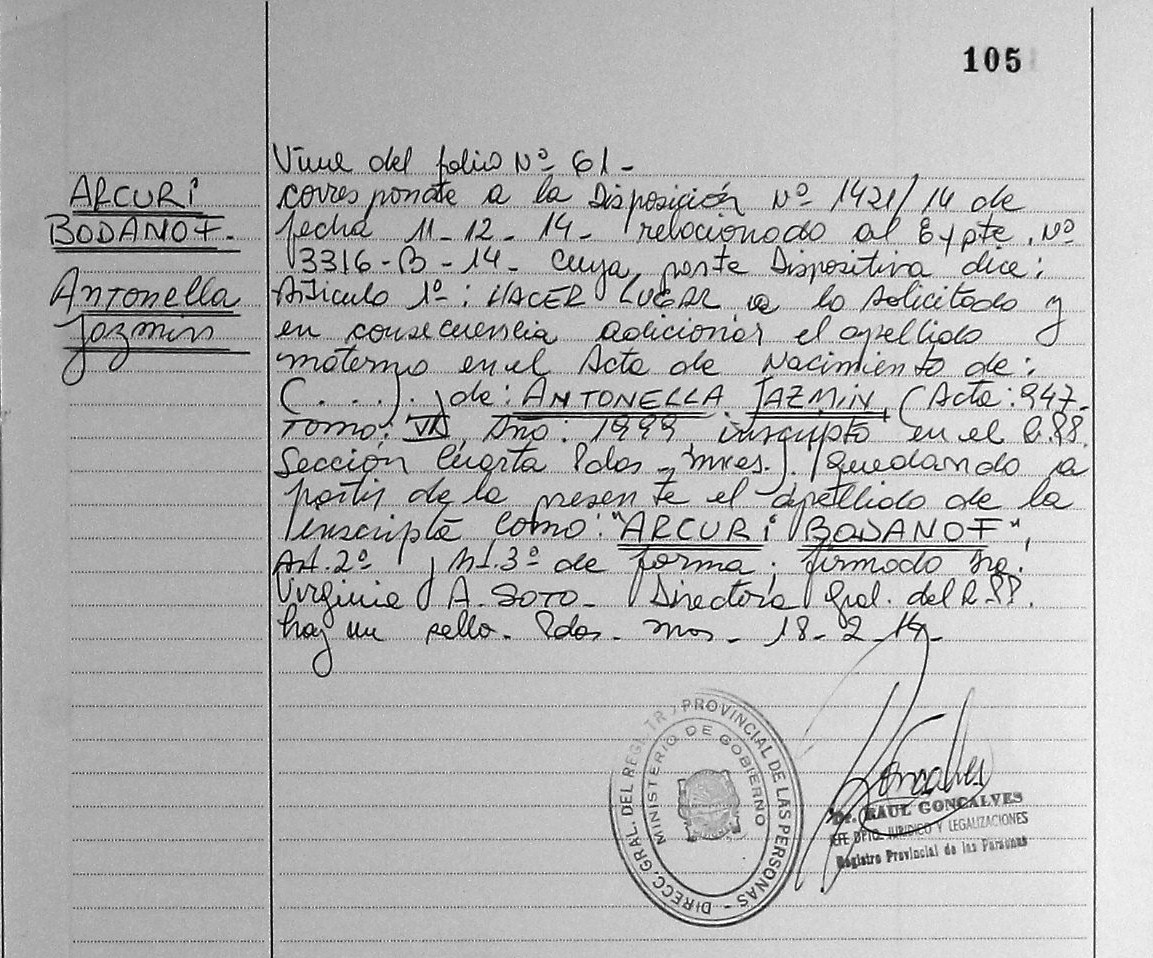 105
ARCURI
BODANOF.
Antonella
Jazmin
Viene del folio Nº 61 -
corresponde a la Disposición Nº 1421/14 de
fecha 11-12-14- relacionado al Expte. Nº
3316-B-14- cuya parte Dispositiva dice:
Artículo 1º: HACER LUGAR a lo solicitado y
en consecuencia adicionar el apellido
materno en el Acta de Nacimiento de:
(...) de: ANTONELLA JAZMIN (Acta: 947-
Tomo: VII, Año: 1999 inscripta en el R.PP.
Sección Cuarta Pdas - Mnes.). Quedando a
partir de la presente el apellido de la
inscripta como: "ARCURI BODANOF",
Art. 2º y Art. 3º de forma. firmado Dra.
Virginia A. SOTO - Directora Gral. del R.PP.
hay un sello. Pdas. Mnes - 18-2-14-
DIRECC. GRAL. DEL REGISTR PROVINCIAL DE LAS PERSONAS -
MINISTERIO DE GOBIERNO
Goncalves
Dr. RAUL GONCALVES
JEFE DPTO. JURIDICO Y LEGALIZACIONES
Registro Provincial de las Personas